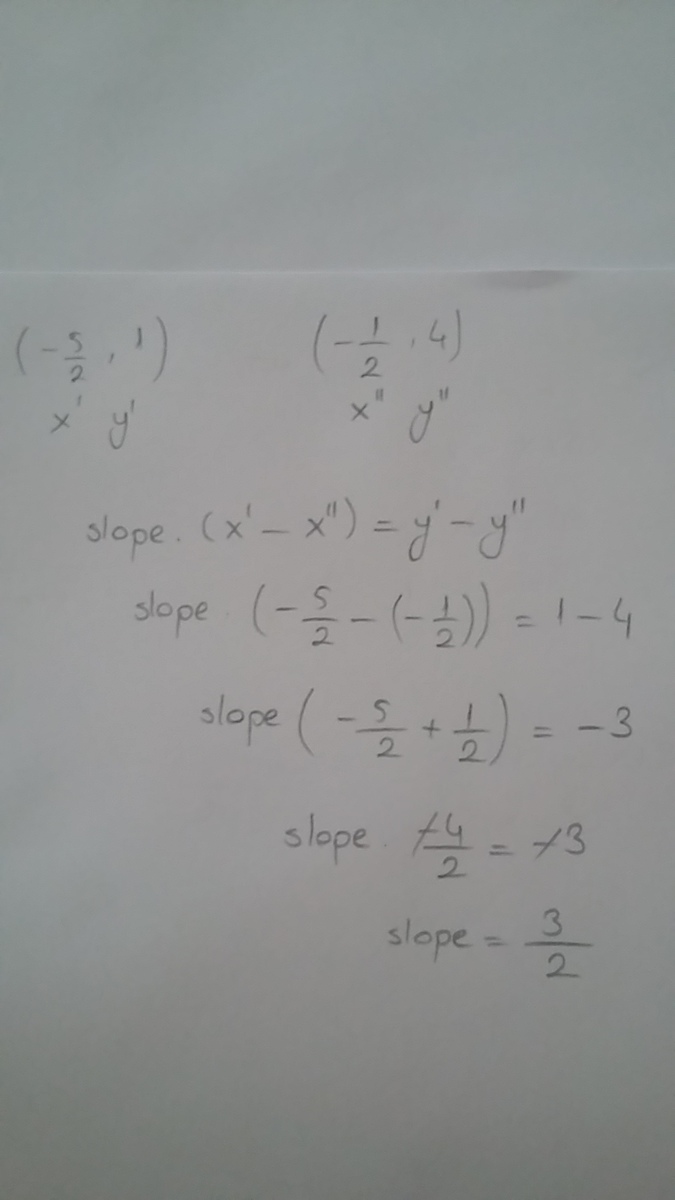 (-5/2, 1) (-1/2, 4)
x' y' x" y"
slope. (x' - x") = y' - y"
slope. (-5/2 - (-1/2)) = 1 - 4
slope (-5/2 + 1/2) = -3
slope. -4/2 = -3
slope = 3/2